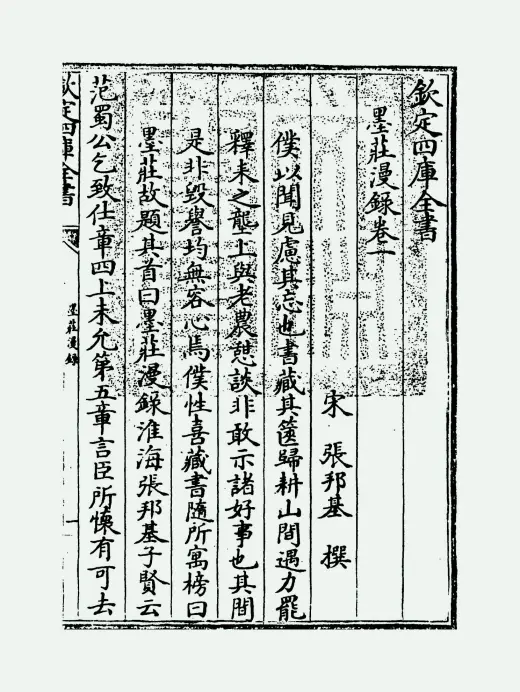 欽定四庫全書
墨莊漫錄卷一
宋 張邦基 撰
僕以聞見慮其忘也書藏其篋歸耕山間遇力罷
釋耒之壟上與老農憩談非敢示諸好事也其間
是非毀譽均無容心焉僕性喜藏書隨所寓榜曰
墨莊故題其首曰墨莊漫錄淮海張邦基子賢云
范蜀公乞致仕章四上未允第五章言臣所懷有可去
欽定四庫全書
墨莊漫錄
一